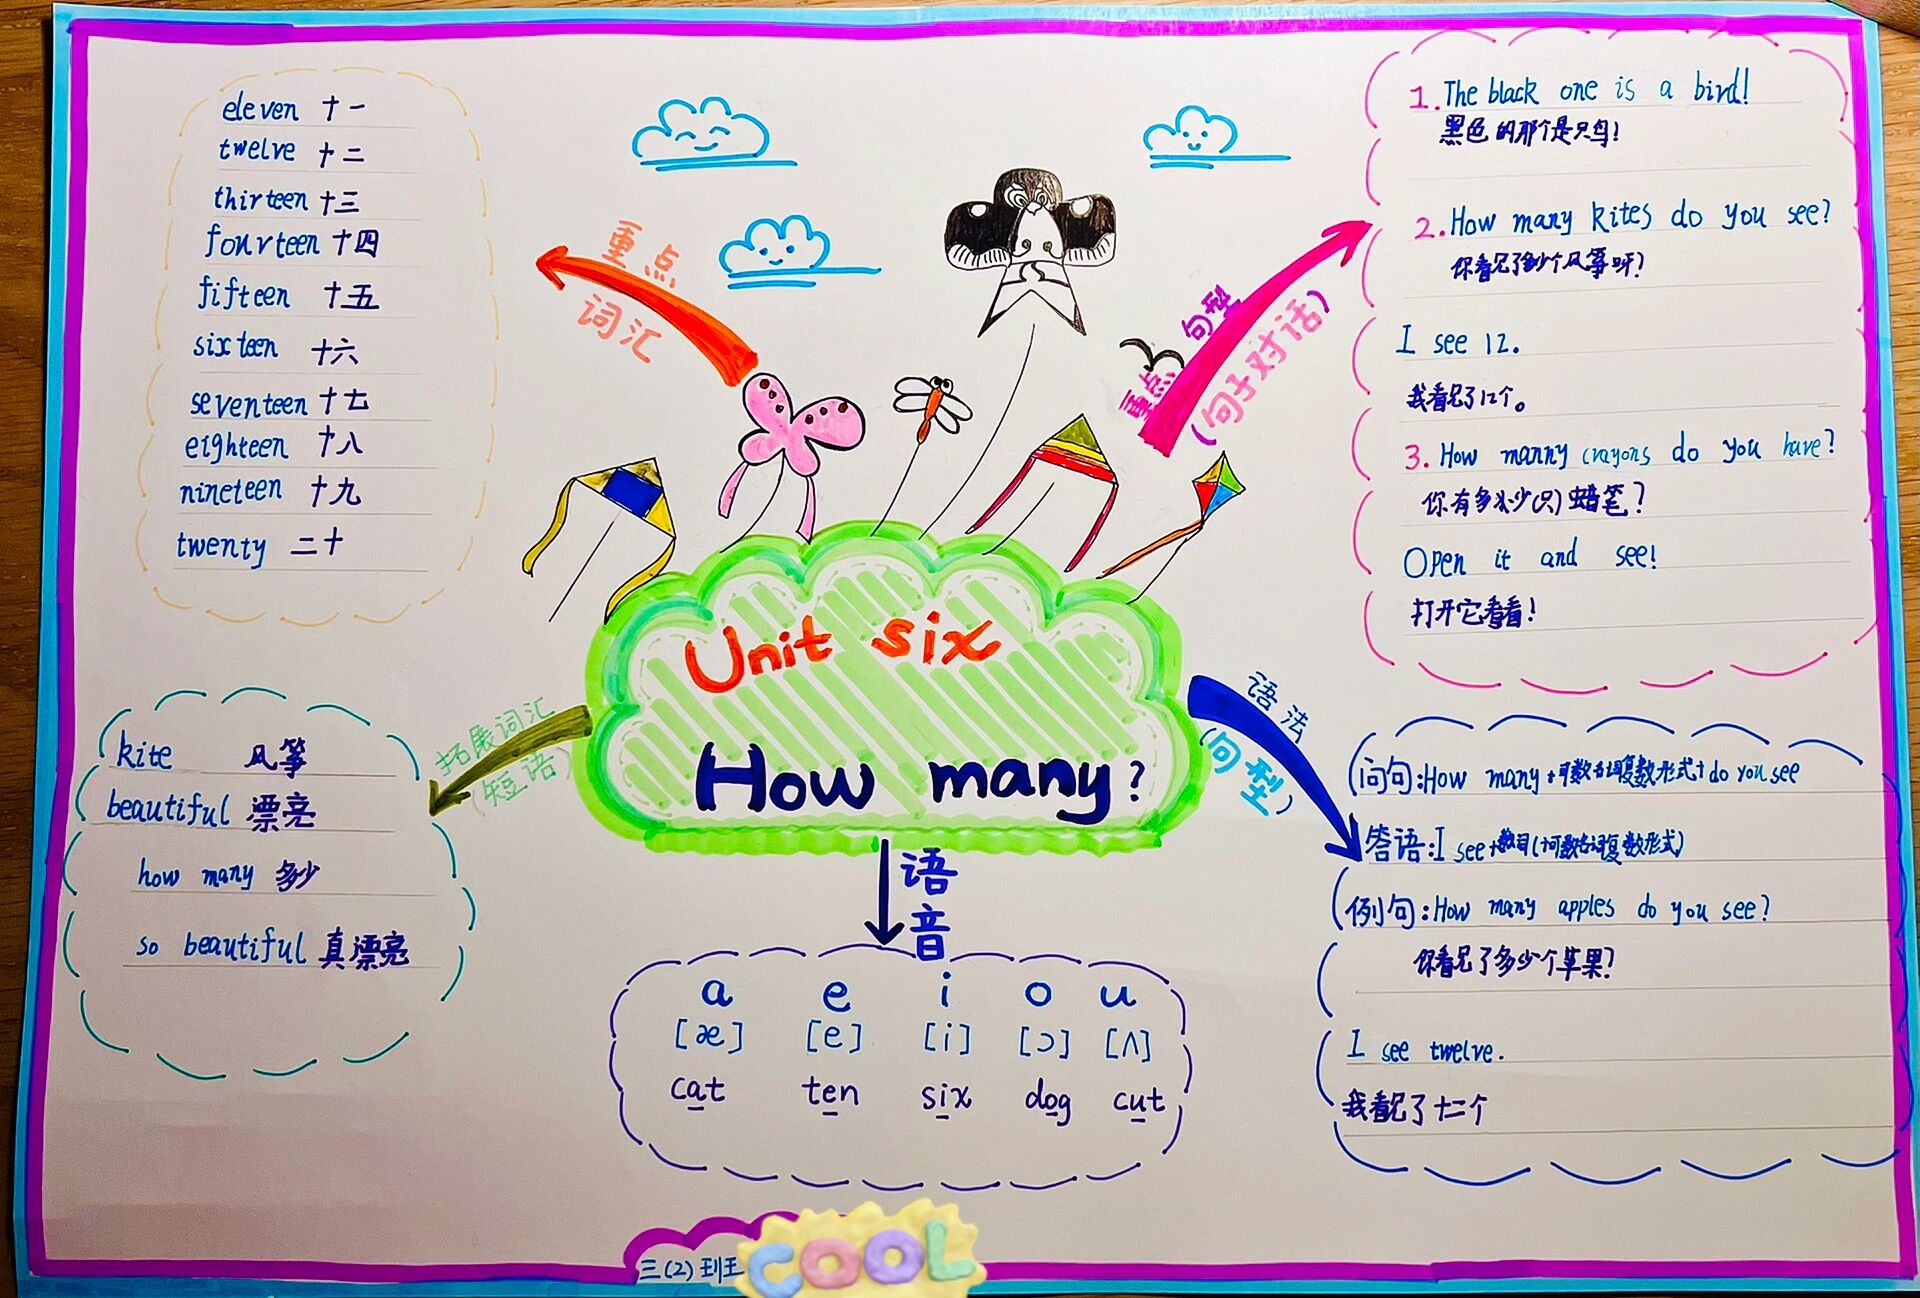 eleven 十一
twelve 十二
thirteen 十三
fourteen 十四
fifteen 十五
sixteen 十六
seventeen 十七
eighteen 十八
nineteen 十九
twenty 二十
重点
词汇
重点 句型
(句子对话)
1. The black one is a bird!
黑色的那个是只鸟!
2. How many kites do you see?
你看见了多少个风筝呀?
I see 12.
我看见了12个。
3. How manny crayons do you have?
你有多少(只)蜡笔?
Open it and see!
打开它看看!
Unit six
How many?
拓展词汇
(短语)
kite 风筝
beautiful 漂亮
how many 多少
so beautiful 真漂亮
语法
(句型)
问句:How many+可数名词复数形式+do you see
答语:I see+数目(+可数名词复数形式)
例句:How many apples do you see?
你看见了多少个苹果?
I see twelve.
我看见了十二个
语
音
a e i o u
[æ] [e] [i] [ɔ] [ʌ]
cat ten six dog cut
三(2)班王
COOL